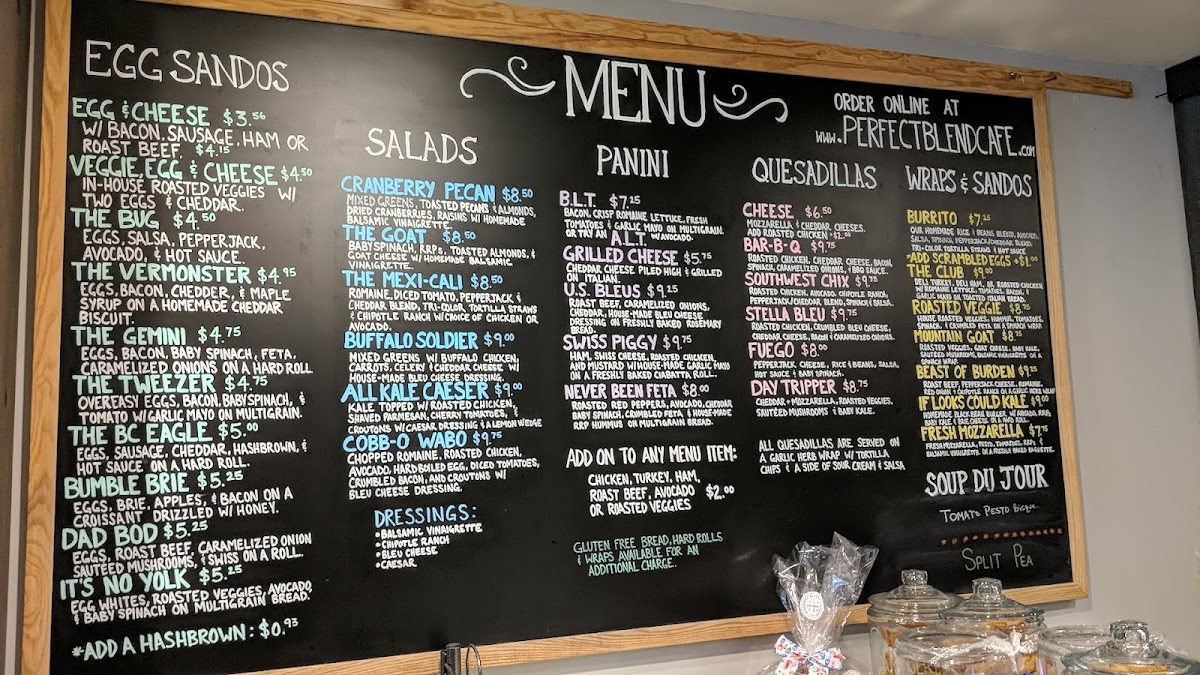 MENU
ORDER ONLINE AT
www.PERFECTBLENDCAFE.com
EGG SANDOS
EGG & CHEESE $3.56
W/ BACON, SAUSAGE, HAM OR
ROAST BEEF $4.15
VEGGIE, EGG & CHEESE $4.50
IN-HOUSE ROASTED VEGGIES W/
TWO EGGS & CHEDDAR.
THE BUG $4.50
EGGS, SALSA, PEPPERJACK,
AVOCADO, & HOT SAUCE.
THE VERMONSTER $4.95
EGGS, BACON, CHEDDER, & MAPLE
SYRUP ON A HOMEMADE CHEDDAR
BISCUIT.
THE GEMINI $4.75
EGGS, BACON, BABY SPINACH, FETA,
CARAMELIZED ONIONS ON A HARD ROLL
THE TWEEZER $4.75
OVEREASY EGGS, BACON, BABY SPINACH, &
TOMATO W/ GARLIC MAYO ON MULTIGRAIN.
THE BC EAGLE $5.00
EGGS, SAUSAGE, CHEDDAR, HASHBROWN, &
HOT SAUCE ON A HARD ROLL.
BUMBLE BRIE $5.25
EGGS, BRIE, APPLES, & BACON ON A
CROISSANT DRIZZLED W/ HONEY.
DAD BOD $5.25
EGGS, ROAST BEEF, CARAMELIZED ONION
SAUTÉED MUSHROOMS, & SWISS ON A ROLL.
IT'S NO YOLK $5.25
EGG WHITES, ROASTED VEGGIES, AVOCADO
& BABY SPINACH ON MULTIGRAIN BREAD.
*ADD A HASHBROWN: $0.93
SALADS
CRANBERRY PECAN $8.50
MIXED GREENS, TOASTED PECANS & ALMONDS,
DRIED CRANBERRIES, RAISINS W/ HOMEMADE
BALSAMIC VINAIGRETTE.
THE GOAT $8.50
BABY SPINACH, RRPs, TOASTED ALMONDS, &
GOAT CHEESE W/ HOMEMADE BALSAMIC
VINAIGRETTE.
THE MEXI-CALI $8.50
ROMAINE, DICED TOMATO, PEPPERJACK &
CHEDDAR BLEND, TRI-COLOR, TORTILLA STRAWS
& CHIPOTLE RANCH W/ CHOICE OF CHICKEN OR
AVOCADO.
BUFFALO SOLDIER $9.00
MIXED GREENS W/ BUFFALO CHICKEN,
CARROTS, CELERY & CHEDDAR CHEESE W/
HOUSE-MADE BLEU CHEESE DRESSING.
ALL KALE CAESER $9.00
KALE TOPPED W/ ROASTED CHICKEN,
SHAVED PARMESAN, CHERRY TOMATOES, &
CROUTONS W/ CAESAR DRESSING & LEMON WEDGE
COBB-O WABO $9.75
CHOPPED ROMAINE, ROASTED CHICKEN,
AVOCADO, HARD BOILED EGG, DICED TOMATOES,
CRUMBLED BACON, AND CROUTONS W/
BLEU CHEESE DRESSING.
DRESSINGS:
• BALSAMIC VINAIGRETTE
• CHIPOTLE RANCH
• BLEU CHEESE
• CAESAR
PANINI
B.L.T. $7.25
BACON, CRISP ROMAINE LETTUCE, FRESH
TOMATOES & GARLIC MAYO ON MULTIGRAIN.
OR TRY AN A.L.T. W/ AVOCADO.
GRILLED CHEESE $5.75
CHEDDAR CHEESE PILED HIGH & GRILLED
ON ITALIAN.
U.S. BLEUS $9.25
ROAST BEEF, CARAMELIZED ONIONS,
CHEDDAR, HOUSE-MADE BLEU CHEESE
DRESSING ON FRESHLY BAKED ROSEMARY
BREAD.
SWISS PIGGY $9.75
HAM, SWISS CHEESE, ROASTED CHICKEN,
AND MUSTARD W/ HOUSE-MADE GARLIC MAYO
ON A FRESHLY BAKED CIABATTA ROLL.
NEVER BEEN FETA $8.00
ROASTED RED PEPPERS, AVOCADO, CHEDDAR
BABY SPINACH, CRUMBLED FETA & HOUSE-MADE
RRP HUMMUS ON MULTIGRAIN BREAD.
ADD ON TO ANY MENU ITEM:
CHICKEN, TURKEY, HAM,
ROAST BEEF, AVOCADO $2.00
OR ROASTED VEGGIES
GLUTEN FREE BREAD, HARD ROLLS
& WRAPS AVAILABLE FOR AN
ADDITIONAL CHARGE.
QUESADILLAS
CHEESE $6.50
MOZZARELLA & CHEDDAR CHEESES.
ADD ROASTED CHICKEN +$2.00
BAR-B-Q $9.75
ROASTED CHICKEN, CHEDDAR CHEESE, BACON,
SPINACH, CARAMELIZED ONIONS, & BBQ SAUCE.
SOUTHWEST CHIX $9.75
ROASTED CHICKEN, AVOCADO, CHIPOTLE RANCH,
PEPPERJACK/CHEDDAR BLEND, SPINACH, & SALSA.
STELLA BLEU $9.75
ROASTED CHICKEN, CRUMBLED BLEU CHEESE,
CHEDDAR CHEESE, BACON & CARAMELIZED ONIONS.
FUEGO $8.00
PEPPERJACK, CHEESE, RICE & BEANS, SALSA,
HOT SAUCE, & BABY SPINACH.
DAY TRIPPER $8.75
CHEDDAR & MOZZARELLA, ROASTED VEGGIES,
SAUTÉED MUSHROOMS & BABY KALE.
ALL QUESADILLAS ARE SERVED ON
A GARLIC HERB WRAP W/ TORTILLA
CHIPS & A SIDE OF SOUR CREAM & SALSA
WRAPS & SANDOS
BURRITO $7.25
OUR HOMEMADE RICE & BEANS BLEND, AVOCADO,
SALSA, SPINACH, PEPPERJACK/CHEDDAR BLEND,
TRI-COLOR TORTILLA STRAWS & HOT SAUCE
*ADD SCRAMBLED EGGS +$1.00
THE CLUB $9.00
DELI TURKEY, DELI HAM, OR ROASTED CHICKEN
W/ ROMAINE LETTUCE, TOMATOES, BACON, &
GARLIC MAYO ON TOASTED ITALIAN BREAD.
ROASTED VEGGIE $8.75
HOUSE ROASTED VEGGIES, HUMMUS, TOMATOES,
SPINACH, & CRUMBLED FETA ON A SPINACH WRAP
MOUNTAIN GOAT $8.75
ROASTED VEGGIES, GOAT CHEESE, BABY KALE,
SAUTÉED MUSHROOMS, BALSAMIC VINAIGRETTE ON A
SPINACH WRAP
BEAST OF BURDEN $9.25
ROAST BEEF, PEPPERJACK CHEESE, ROMAINE,
RED ONION & CHIPOTLE RANCH ON A GARLIC HERB WRAP
IF LOOKS COULD KALE $9.00
HOMEMADE BLACK BEAN BURGER, W/ AVOCADO, RRPs,
BABY KALE & BRIE CHEESE ON A HARD ROLL.
FRESH MOZZARELLA $7.75
FRESH MOZZARELLA, PESTO, TOMATOES, RRPs &
BALSAMIC VINAIGRETTE ON A FRESHLY BAKED BAGUETTE.
SOUP DU JOUR
TOMATO PESTO BISQUE
SPLIT PEA